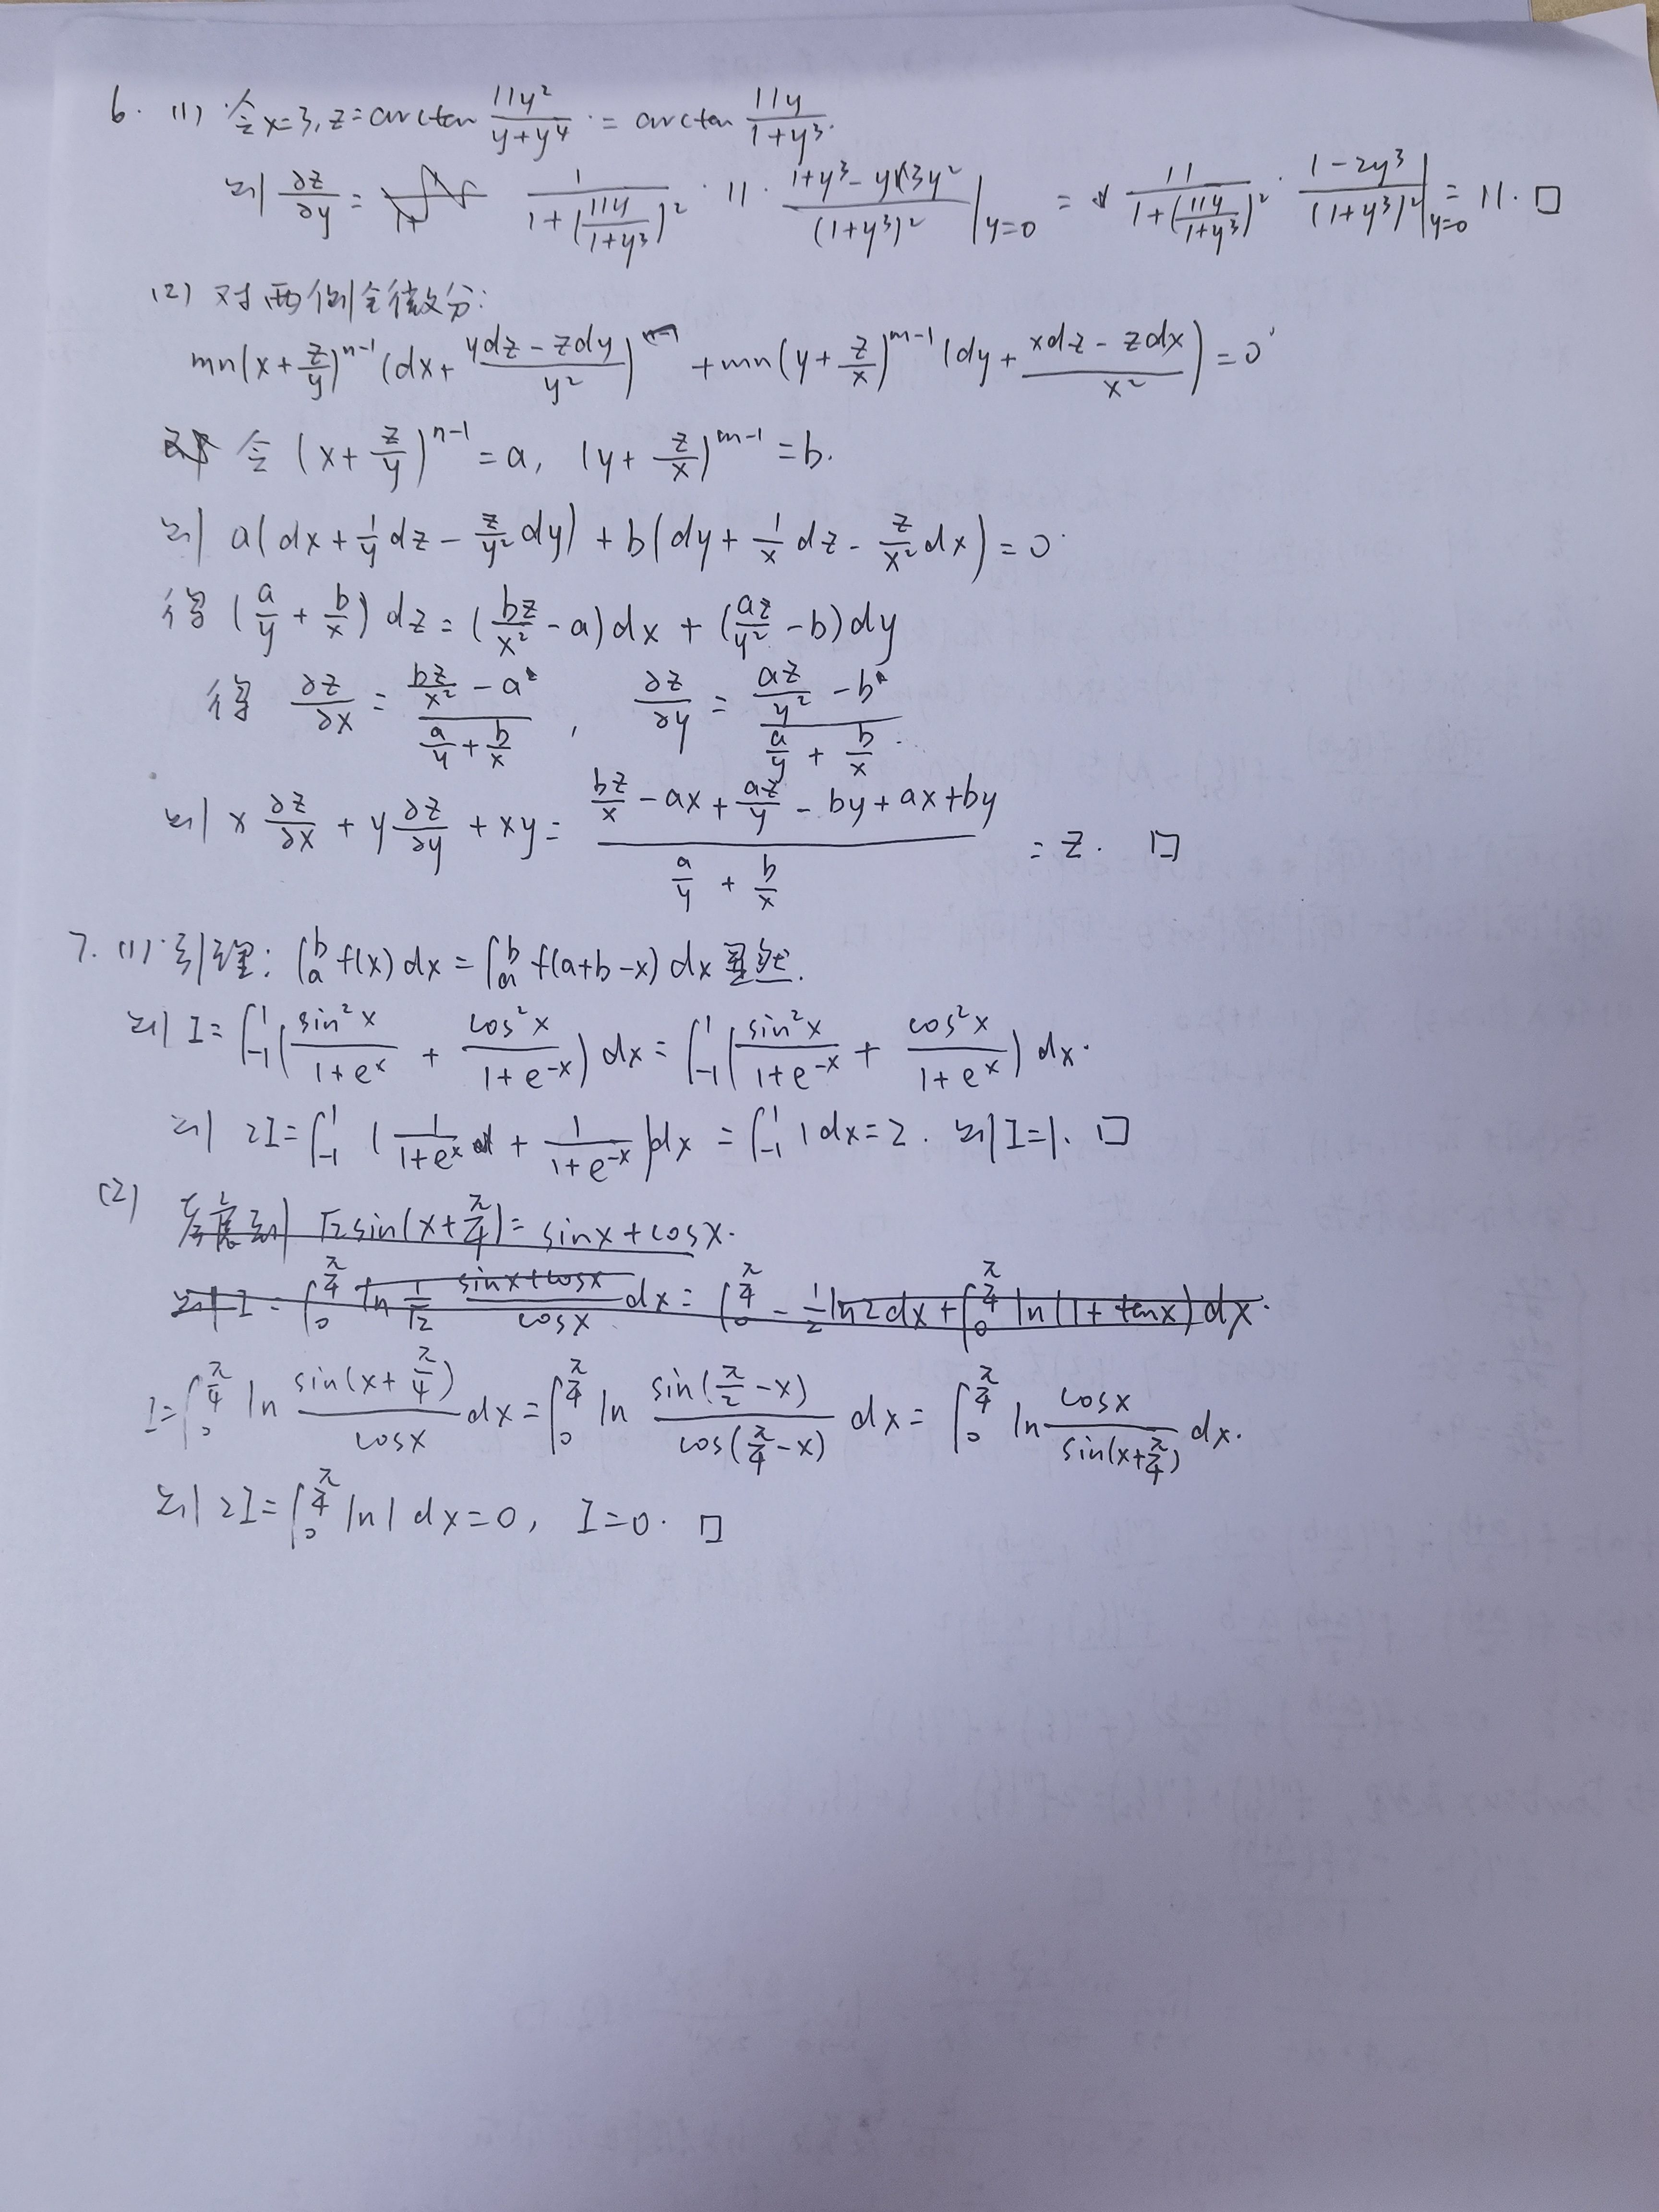 6. (1) 令x=3, z=arctan 11y²/(y+y⁴) = arctan 11y/(1+y³).
则 ∂z/∂y = 1/(1+(11y/(1+y³))²) · 11 · (1+y³-y·3y²)/(1+y³)² |y=0 = 11/(1+(11y/(1+y³))²) · (1-2y³)/(1+y³)² |y=0 = 11. □
(2) 对两侧全微分:
mn(x+z/y)ⁿ⁻¹(dx+(ydz-zdy)/y²) + mn(y+z/x)ᵐ⁻¹(dy+(xdz-zdx)/x²)=0
令 (x+z/y)ⁿ⁻¹=a, (y+z/x)ᵐ⁻¹=b.
则 a(dx+1/y dz - z/y² dy) + b(dy+1/x dz - z/x² dx)=0
得 (a/y+b/x)dz=(bz/x²-a)dx+(az/y²-b)dy
得 ∂z/∂x = (bz/x²-a)/(a/y+b/x), ∂z/∂y = (az/y²-b)/(a/y+b/x).
则 x ∂z/∂x + y ∂z/∂y + xy = (bz/x-ax+az/y-by+ax+by)/(a/y+b/x) = z. □
7. (1) 引理: ∫ₐᵇ f(x)dx = ∫ₐᵇ f(a+b-x)dx 显然.
则 I=∫₋₁¹(sin²x/(1+eˣ) + cos²x/(1+e⁻ˣ))dx = ∫₋₁¹(sin²x/(1+e⁻ˣ) + cos²x/(1+eˣ))dx.
则 2I=∫₋₁¹(1/(1+eˣ) + 1/(1+e⁻ˣ))dx = ∫₋₁¹ 1dx=2. 则I=1. □
(2) 考虑到 √2sin(x+π/4)=sinx+cosx.
则 I=∫₀^(π/4) ln 1/√2 (sinx+cosx)/cosx dx = ∫₀^(π/4) -1/2 ln2dx + ∫₀^(π/4) ln(1+tanx)dx.
I=∫₀^(π/4) ln sin(x+π/4)/cosx dx = ∫₀^(π/4) ln sin(π/2-x)/cos(π/4-x) dx = ∫₀^(π/4) ln cosx/sin(x+π/4) dx.
则 2I=∫₀^(π/4) ln1 dx=0, I=0. □